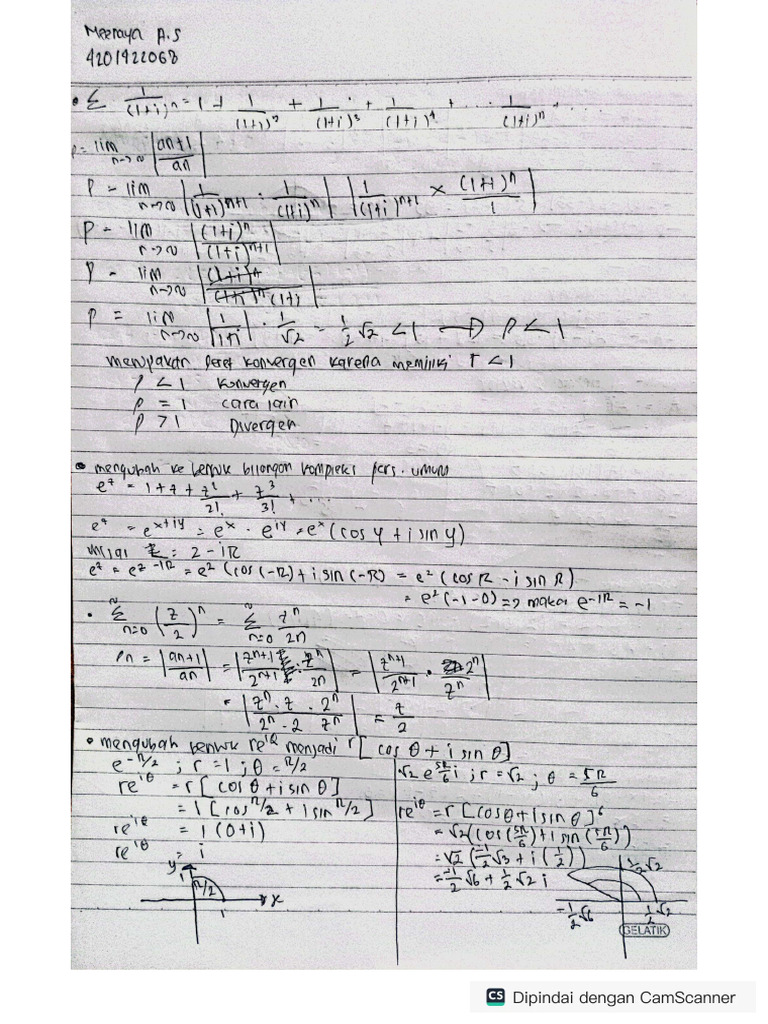 Meeraya A.S
4201422068
• Σ 1/(1+i)^n = 1 + 1/(1+i)^2 + 1/(1+i)^3 + 1/(1+i)^4 + ... 1/(1+i)^n + ...
ρ = lim n→∞ |an+1/an|
ρ = lim n→∞ |1/(1+i)^n+1 · 1/(1+i)^n| |1/(1+i)^n+1 × (1+i)^n/1|
ρ = lim n→∞ |(1+i)^n/(1+i)^n+1|
ρ = lim n→∞ |(1+i)^n/(1+i)^n (1+i)|
ρ = lim n→∞ |1/1+i| · 1/√2 = 1/2 √2 < 1 → ρ < 1
merupakan deret konvergen karena memiliki r < 1
ρ < 1 konvergen
ρ = 1 cara lain
ρ > 1 Divergen
• mengubah ke bentuk bilangan kompleks pers. umum
e^z = 1 + z + z^2/2! + z^3/3! + ...
e^z = e^x+iy = e^x · e^iy = e^x (cos y + i sin y)
misal z = 2 - iπ
e^z = e^2-iπ = e^2 (cos(-π) + i sin(-π)) = e^2 (cos π - i sin π)
= e^2 (-1-0) => maka e^-iπ = -1
• ∞Σn=0 (z/2)^n = ∞Σn=0 z^n/2n
ρn = |an+1/an| = |z^n+1/2^n+1 · z^n/2n| = |z^n+1/2^n+1 · 2^n/z^n|
= |z^n · z · 2^n/2^n · 2 z^n| = z/2
• mengubah bentuk re^iθ menjadi r[cos θ + i sin θ]
e^-π/2 ; r = 1 ; θ = π/2
re^iθ = r[cos θ + i sin θ]
= 1[cos π/2 + i sin π/2]
re^iθ = 1(0+i)
re^iθ = i
y
i
π/2
x
1
√2 e^5π/6 i ; r = √2 ; θ = 5π/6
re^iθ = r[cos θ + i sin θ]^6
= √2 (cos(5π/6) + i sin(5π/6))
= √2 (-1/2 √3 + i(1/2))
= -1/2 √6 + 1/2 √2 i
1/2 √2
-1/2 √6
1/2 √2
GELATIK
CS Dipindai dengan CamScanner